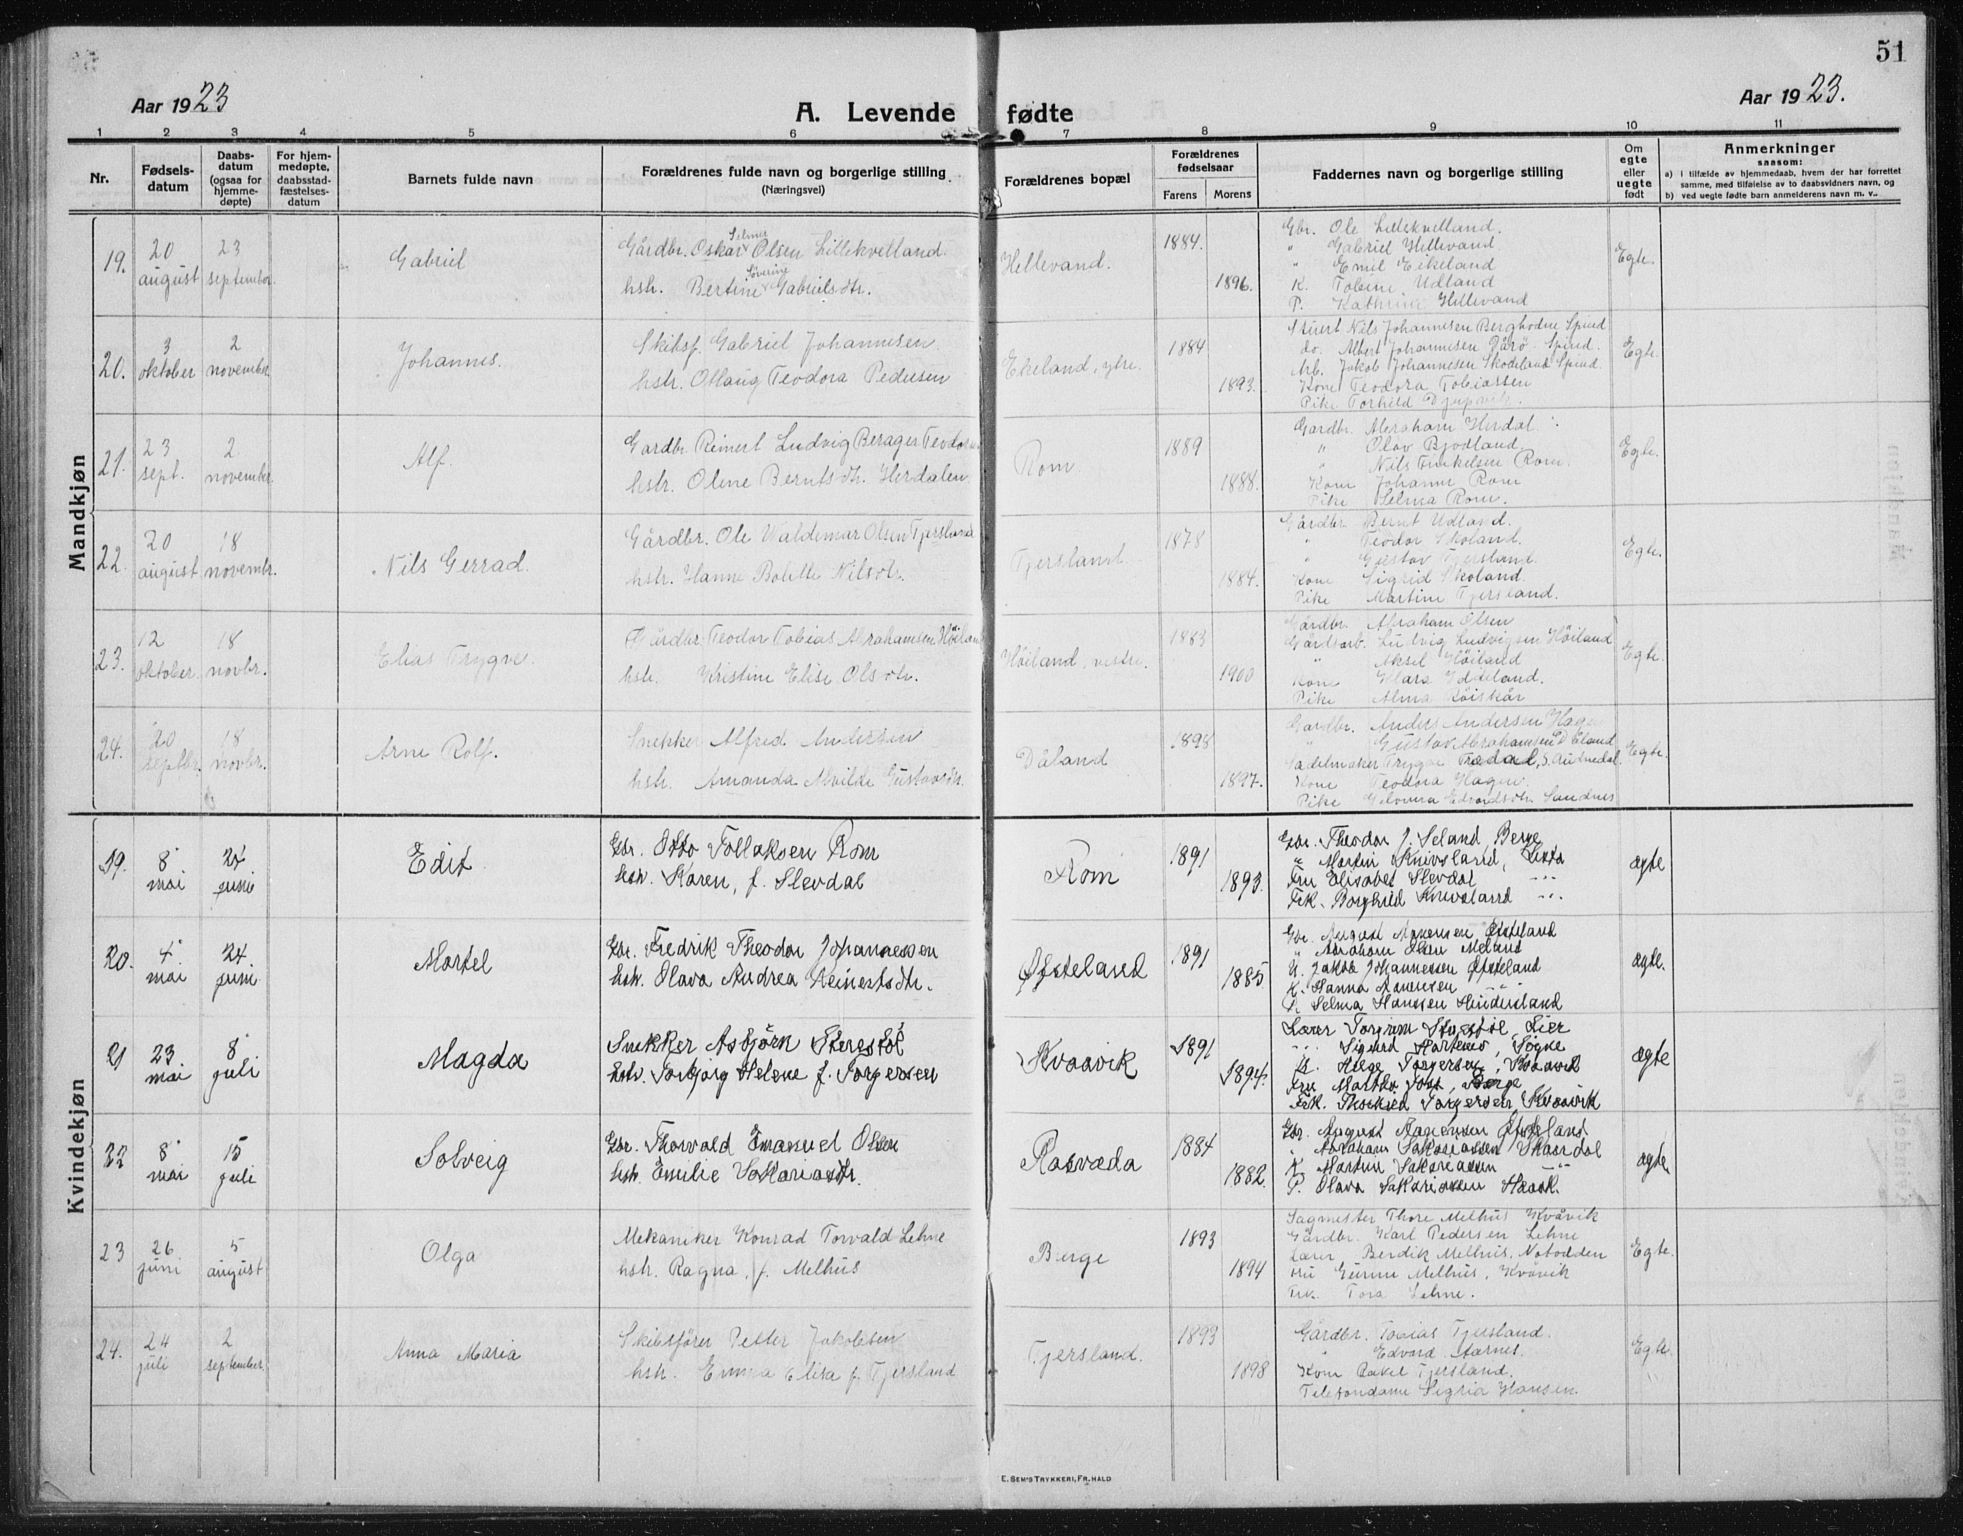 51
Aar 1923
A. Levende fødte
Aar 1923.
1 2 3 4 5 6 7 8 9 10 11
Nr.
Fødsels-
datum
Daabs-
datum
(ogsaa for
hjemme-
døpte)
For hjem-
medøpte,
daabsstad-
fæstelses-
datum
Barnets fulde navn
Forældrenes fulde navn og borgerlige stilling
(Næringsvei)
Forældrenes bopæl
Forældrenes
fødselsaar
Farens Morens
Faddernes navn og borgerlige stilling
Om
egte
eller
uegte
født
Anmerkninger
saasom:
a) i tilfælde av hjemmedaab, hvem der har forrettet
samme, med tilføielse av to daabsvidners navn, og
b) ved uegte fødte barn anmelderens navn m. v..
Mandkjøn
19.
20
august
23
september
Gabriel
Selmer
Gårdbr. Oskar Olsen Lillekvelland.
Søverine
hstr. Bertine Gabrielsdtr.
Hellevand.
1884.
1896.
Gbr. Ole Lillekvelland.
" Gabriel Hellevand.
" Emil Eikeland
K. Tobine Udland
P. Kathrine Hellevand
Egte.
20.
3
oktober
2
november
Johannes.
Skibsf. Gabriel Johannesen.
hstr. Ollaug Teodora Pedersen
Ekeland, ytre.
1884
1893.
Nils Johannesen Berghodne Spind
do. Albert Johannesen Dårø Spind.
Jakob Johannesen Skodeland Spind.
Kone Teodora Tobiassen
Pike Torhild Djupvik.
Egte.
21.
23
sept.
2.
november
Alf.
Gardbr. Reinert Ludvig Berager
hstr. Olene Berntsdtr. Herdalen.
Rom.
1889
1888.
Gardbr. Abraham Herdal
" Olav Bjodland
" Nils Rom.
Kone Johanne Rom
Pike Selma Rom.
Egte.
22.
20
august
18
novembr.
Nils Gerrad.
Gårdbr. Ole Waldemar Olsen Tjersland
hstr. Hanne Bolette Nilsdtr.
Tjersland
1878
1884.
Gårdbr. Bernt Udland.
" Teodor Skoland.
" Gustav Tjersland.
Kone Sigrid Skoland.
Pike Martine Tjersland.
Egte.
23.
12
oktober
18
novbr.
Elias Trygve.
Gårdbr. Teodor Tobias Abrahamsen Høiland
hstr. Kristine Elise Olsdtr.
Høiland, vestre.
1883
1900
Gårdbr. Abraham Olsen
Gårdsarb. Ludvig Ludvigsen Høiland
" Aksel Høiland
Kone Klara
Pike Alma Røiskår
Egte.
24.
20
septbr.
18
novbr.
Arne Rolf.
Snekker Alfred Andersen
hstr. Amanda Alvilde Gustavsdtr.
Dåland
1898
1897.
Gardbr. Anders Andersen Hagen
" Gustav Abrahamsen Dåland
Sadelmaker Trygve S. Audnedal
Kone Teodora Hagen.
Pike Edvardsdtr. Sandnes
Egte.
Kvindekjøn
19.
8
mai
24
juni
Edit
Gbr. Otto Tollaksen Rom
hstr. Karen, f. Slevdal
Rom
1891
1893.
Gbr. Theodor J. Seland Berge
" Martin Knivsland, Lista
Fru Elisabet Slevdal "
Frk. Borghild Knivsland "
ægte
20.
4
mai
24.
juni
Martel
Gbr. Fredrik Theodor Johannessen
hstr. Olava Andrea Reinertsdtr.
Øfsteland
1891
1885
Gbr. August Aanensen Øfsteland
" Abraham Olsen Meland
U. Jakob Johannessen Øfsteland
K. Hanna Aanensen "
P. Selma Hanssen Hindersland
ægte.
21
23
mai
8
juli
Magda
Snekker Asbjørn
hstr. Torbjørg Helene f. Torgersen
Kvaavik
1891
1894.
Lærer Torgrim Lier
" Sigurd Søgne
U. Helge Torgersen, Kvaavik
Fru Martha Berge
Frk. Torgersen, Kvaavik
ægte
22
8
mai
15
juli
Solveig
Gbr. Thorvald Emanuel Olsen
hstr. Emilie Sakariasdtr.
Rosvæda
1884
1882.
Gbr. August Aanensen Øfsteland
" Abraham Sakariassen Skaardal
K. Martine Sakariassen "
P. Olava Sakariassen
ægte
23
26
juni
5
august
Olga
Mekaniker Konrad Torvald Lehne
hstr. Ragna, f. Melhus
Berge
1893
1894
Sagmester Thore Melhus Kvåvik
Gårdbr. Karl Pedersen Lehne
Lærer Berdik Melhus, Notodden
Fru Gunne Melhus, Kvåvik
Frk. Tora Lehne.
Egte.
24.
24
juli
2
september
Anna Maria
Skibsfører Petter Jakobsen
hstr. Emma Elisa f. Tjersland
Tjersland.
1893
1898
Gårdbr. Tobias Tjersland.
" Edvard Aarnes.
Kone Rakel Tjersland.
Telefondame Sigrid Hansen.
Egte.
E. SEM'S TRYKKERI, FR.HALD